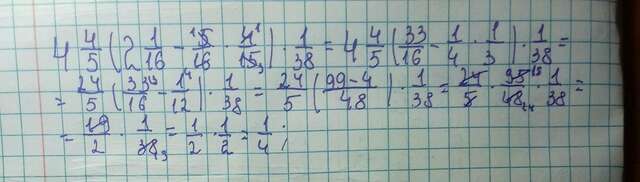 4 4/5 (2 1/16 - 15/16 · 4/15) · 1/38 = 4 4/5 (33/16 - 1/4 · 1/3) · 1/38 =
= 24/5 (33/16 - 1/12) · 1/38 = 24/5 (99-4/48) · 1/38 = 24/5 · 95/48 · 1/38 =
= 19/2 · 1/38 = 1/2 · 1/2 = 1/4 ;